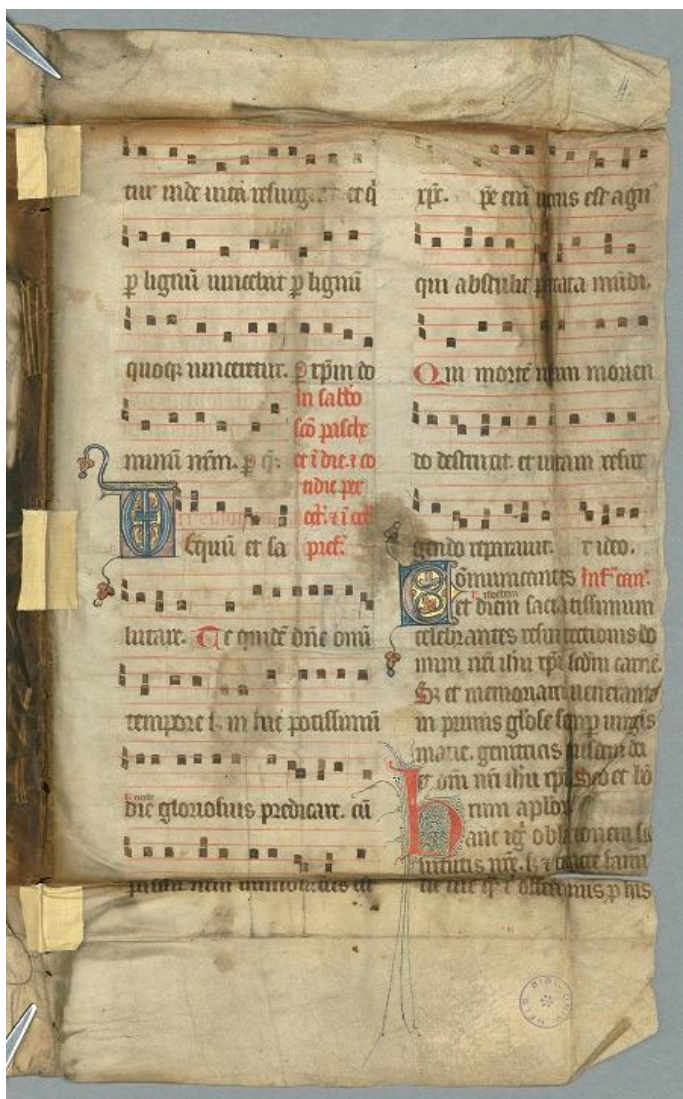 tur inde uita resurg et et q̄
p̲ lignū uincebat p̲ lignū
quoqꝫ uinceretur. P̲ xp̄m do
In sab̄bo
sc̄o pasche
minū nr̄m. p̲ q̄.
et ī die. ⁊ co
tidie per
oct̄. ⁊ ī oct̄
Equū et sa
pref̄.
lutare. Te quidē dn̄e omī
tempore s. in hac potissimū
nocte
die gloriosius predicare. cū
pascha nr̄m immolatus est
xp̄c. Ip̄e enī uerus est agn
qui abstulit peccata mūdi.
Qui mortē nr̄am morien
do destruxit. et uitam resur
gendo reparauit. Et ideo.
Cōmunicantes Inf̄ can̄.
noctem
et diem sacratissimum
celebrantes resurrectionis do
mini nr̄i ihū xp̄i scd̄m carnē.
Sꝫ et memoriam uenerantes
in primis gl̄ose semp̲ uirgis
marie. genitricis eiusdem dei
et dn̄i nr̄i ihū xp̄i Sed et bō
rum aplōr
hanc igr̄ oblationem ser
uitutis nr̄e. sꝫ ⁊ cuncte famil
lie tue qͣ t̄ offerimus p̲ his
BIBL. UNIV. HELS.